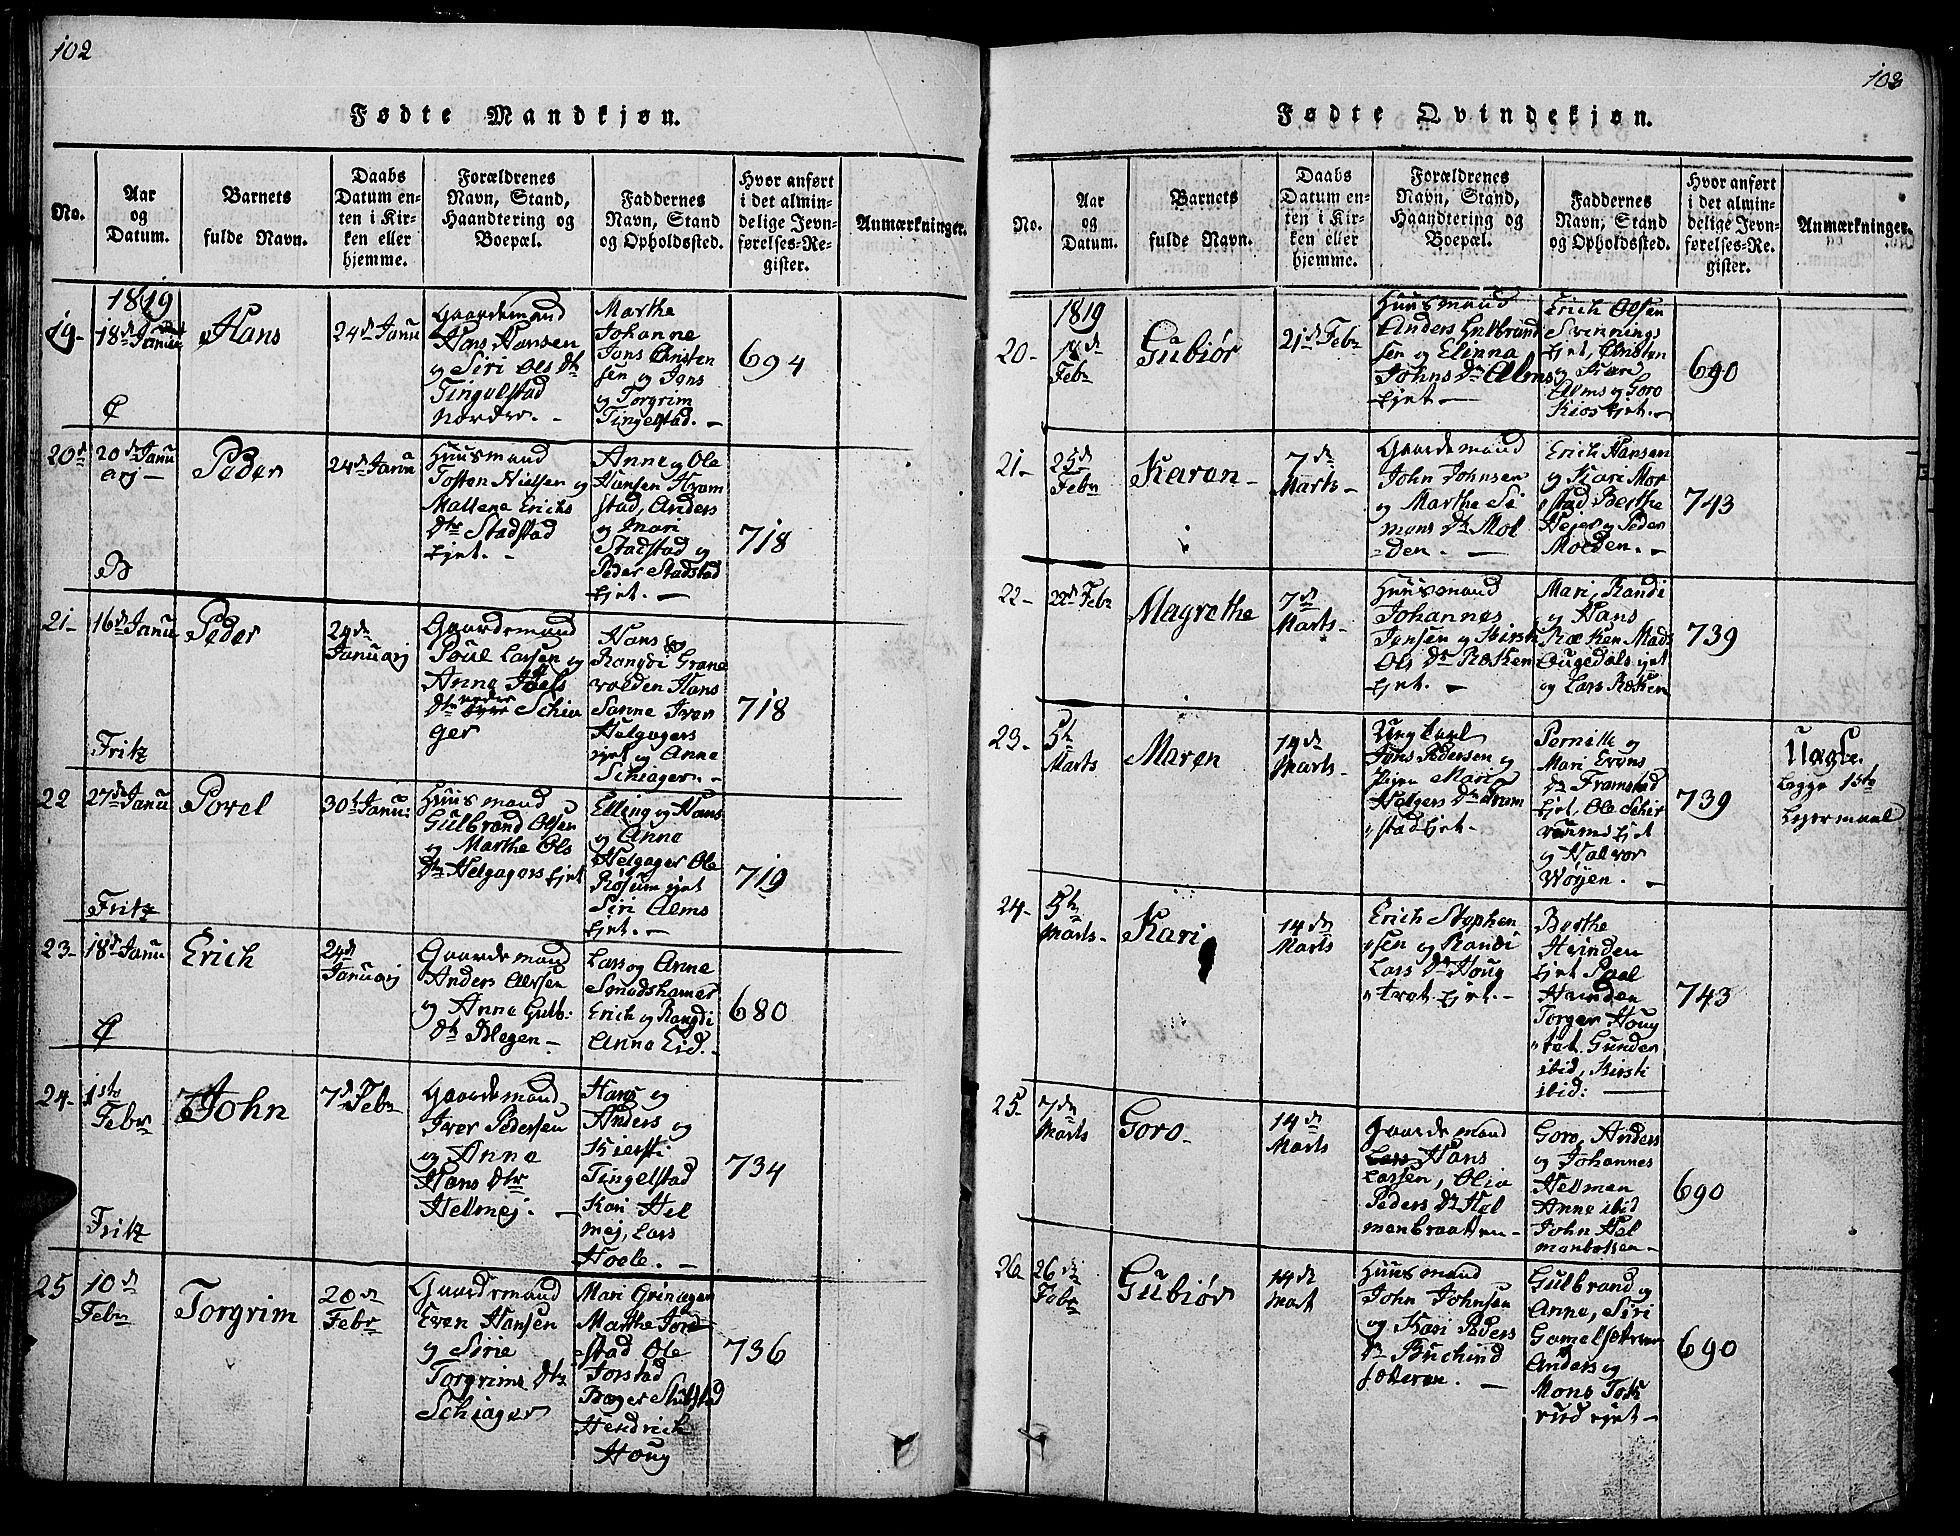 102
Fødte Mandkjøn.
No.
Aar
og
Datum.
Barnets
fulde Navn.
Daabs
Datum en-
ten i Kir-
ken eller
hjemme.
Forældrenes
Navn, Stand,
Haandtering og
Boepæl.
Faddernes
Navn, Stand
og Opholdssted.
Hvor anført
i det almin-
delige Jevn-
førelses-Re-
gister.
Anmærkninger.
1819
19-
18de Janu
Hans
24d Janu
Gaardemand
Hans Hansen
og Siri Ols Dtr
Tingelstad
nordre. -
Marthe
Johanne
Jens Christen
sen og Jens
og Torgrim
Tingelstad. -
694
20
20d Janu
arj -
Peder
24d Janu
Huusmand
Tosten Nielsen og
Mallene Erichs
Dtr Stadstad
Ejet. -
Anne og Ole
Hansen Hram
stad, Anders
og Mari
Stadstad og
Peder Stadstad
Ejet. -
718
21-
16d Janu
Fritz
Peder
24d
Januarj
Gaardemand
Poul Larsen og
Anne Joels
Dtr nedre Schia
ger
Hans og
Rangdi Grane
volden Hans
Sanne Iver
Helgagers
ejet og Anne
Schiager. -
718
22
27d Janu
Fritz
Povel
30t Janu:
Huusmand
Gulbrand Olsen
og Marthe Ols
Dtr Helgagers Ejet
Elling og Hans
og Anne
Helgager Ole
Rosum ejet
Siri Alms
Ejet. -
719
23-
18d Janu
Erich
24d
Januarj
Gaardemand
Anders Alfsen
og Anne Gulb:
Dtr Blegen -
Lars og Anne
Smedshamer
Erich og Rangdi
Anne Eid. -
680
24-
1ste
Febr
Fritz
John
7d Febr
Gaardemand
Iver Pedersen
og Anne
Hans Dtr
Helmej. -
Hans og
Anders og
Kiersti
Tingelstad
Kari Hel
mej, Lars
Hoele. -
734
25
10de
Febr
Torgrim
20de
Febr
Gaardemand
Even Hansen
og Sirie
Torgrims Dtr
Schiager
Mari Grinager
Marthe Jor
stad Ole
Jorstad
Hendrich
Houg
736
103
Fødte Qvindekjøn.
No.
Aar
og
Datum.
Barnets
fulde Navn.
Daabs
Datum en-
ten i Kir-
ken eller
hjemme.
Forældrenes
Navn, Stand,
Haandtering og
Boepæl.
Faddernes
Navn, Stand
og Opholdssted.
Hvor anført
i det almin-
delige Jevn-
førelses-Re-
gister.
Anmærkninger.
1819
20-
Febr
Gubiør
21d Febr
Huusmand
Anders Gulbrand
sen og Elinna
Johns Dr Alms
Ejet -
Erich Olsen
Svinnings
Ejet, Christen
og Kari
Alms og Goro
Kios Ejet. -
690
21-
25d
Febr
Karen -
7de
Marts -
Gaardemand
John Johnsen
og Marthe Si
mens Dr Mol
den. -
Erich Hansen
og Kari Mor
stad Berthe
Hejer og Peder
Molden. -
743
22-
22d Febr
Magrethe
7de
Marts -
Huusmand
Johannes
Jensen og Kirsti
Ols Dr Røken
Ejet. -
Mari, Randi
og Hans
Røken Mads
Ougedals ejet
og Lars Røken
739
23-
5te
Marts
Maren
14de
Marts -
Ungkarl
Jens Pedersen og
Pige Mari
Holgers Dr Fram
stad Ejet -
Pernille og
Mari Evens
Dr Framstad
Ejet, Ole Schier
vums Ejet
og Halvor
Wøyen. -
739
Uægte.
begge 1ste
Lejermaal
24-
5te
Marts -
Kari
14de
Marts
Erich Stephen
sen og Randi
Lars Dr Houg
trøt Ejet. -
Berthe
Hvinden
Ejet Paal
Hvinden
Torger Houg
trøt Gunder
ibid, Kirsti
ibid: -
743
25-
7de
Marts
Goro -
14de
Marts
Gaardemand
Hans
Larsen, Olia
Peders Dr Hel
manbraaten -
Goro, Anders
og Johannes
Helman
Anne ibid
John Hel
690
26
26de
Febr
Gubiør
14de
Mart
Huusmand
John Johnsen
og Kari Peders
Dr Buchind
Gulbrand og
Anne, Siri
Anders og
Mons
rud ejet -
690